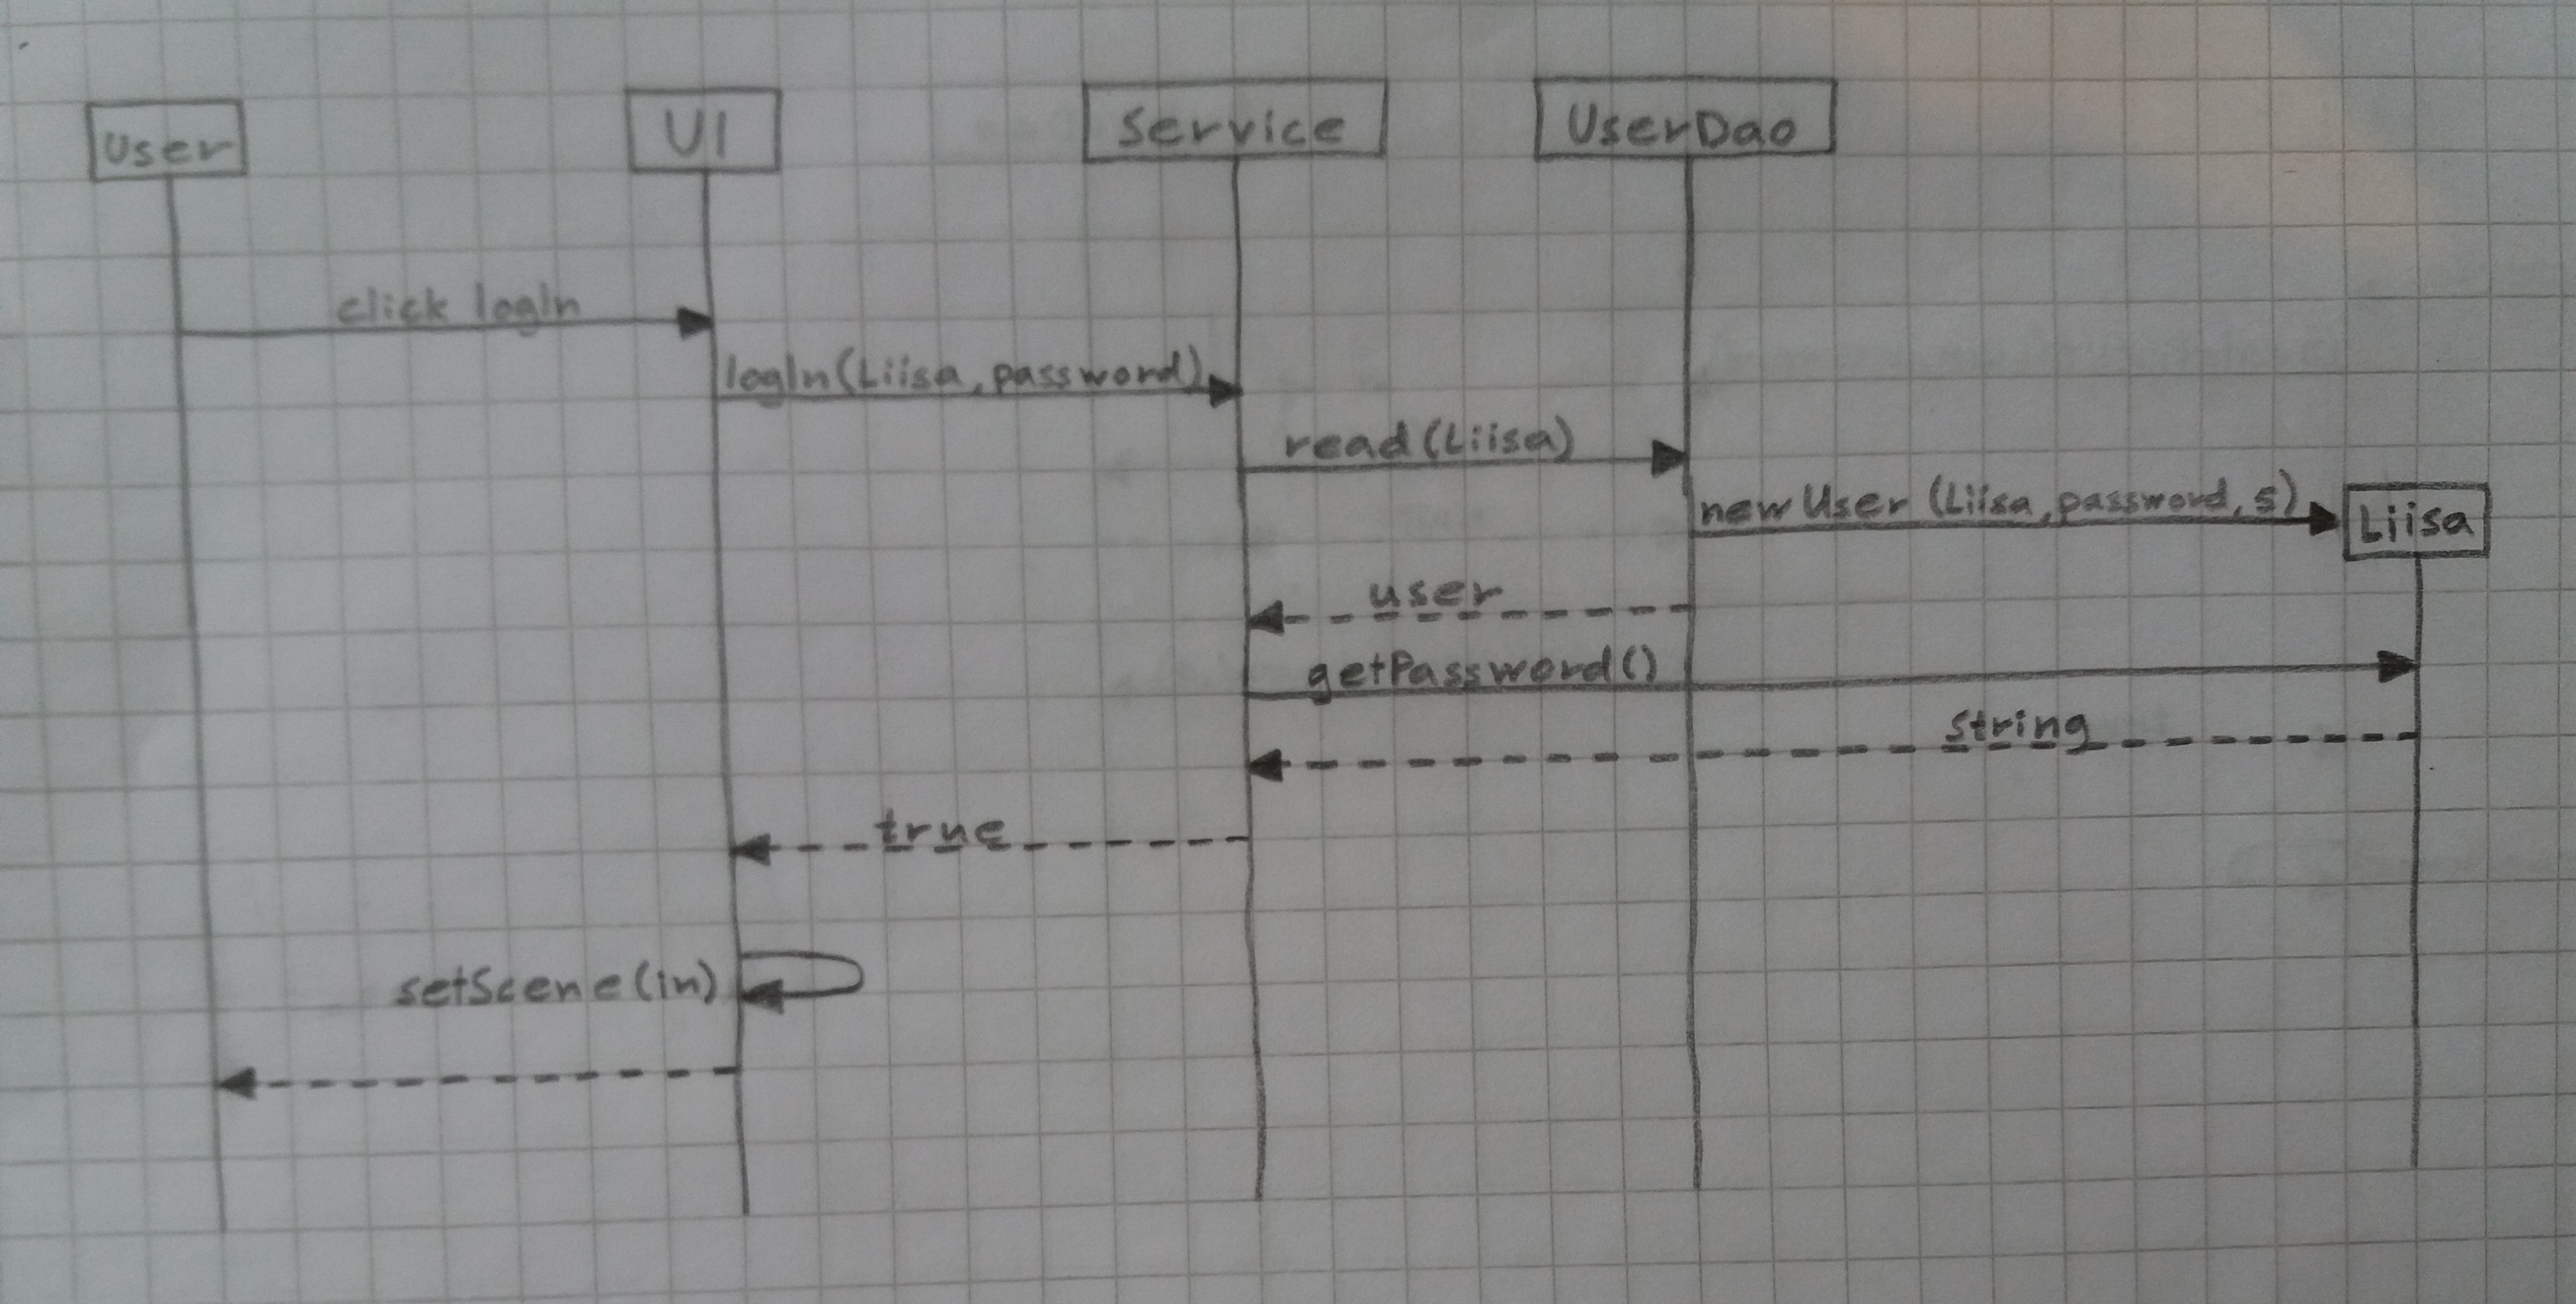 User
UI
Service
UserDao
click logIn
logIn(Liisa, password)
read(Liisa)
new User (Liisa, password, 5)
Liisa
user
getPassword()
string
true
setScene(in)